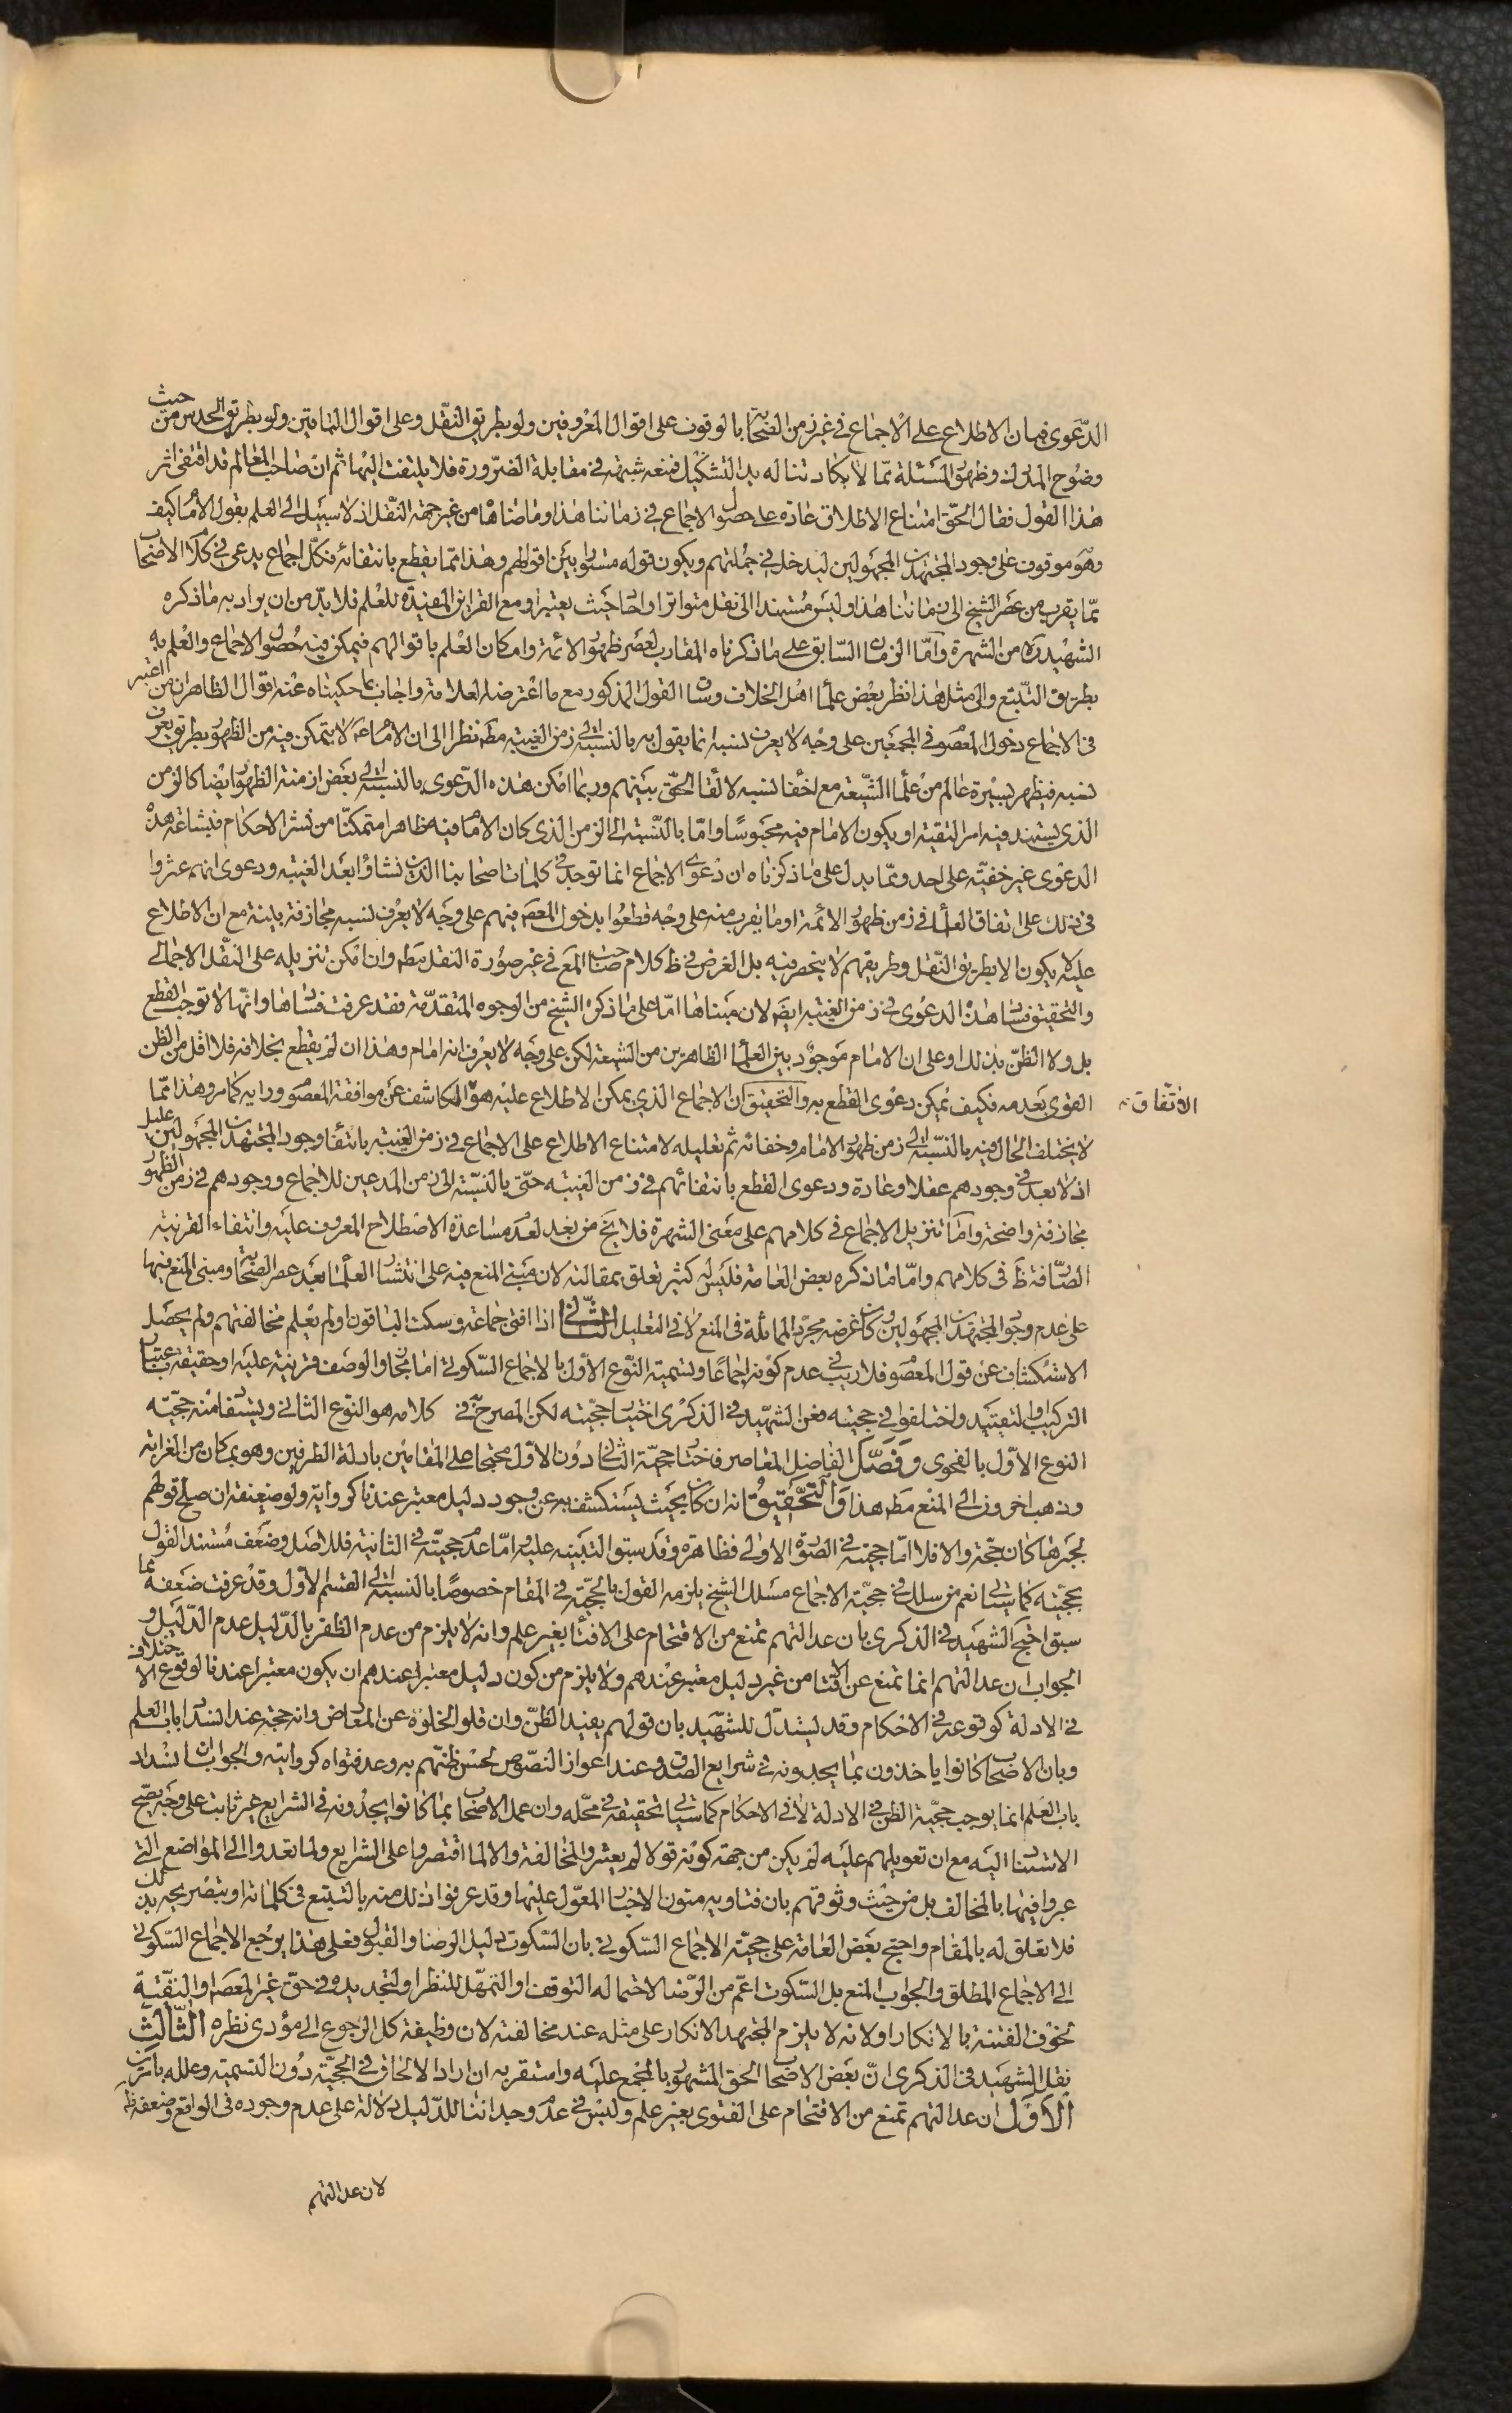 الدّعوى فبان الاطلاع على الاجماع في غير زمن الصّحابة بالوقوف على اقوال المعروفين ولو بطريق النّقل وعلى اقوال الباقين ولو بطريق الحدس من حيث
وضوح المدرك وظهور المسئلة ممّا لا يكاد تناله يد التشكيك فمنعه شبهة في مقابلة الضّرورة فلا يلتفت اليها ثم ان صاحب المعالم قد اقتفى اثر
هذا القول فقال الحقّ امتناع الاطلاق عادة على حصول الاجماع في زماننا هذا وما ضاهاه من غير جهة النّقل اذ لا سبيل الى العلم بقول الامام كيف
وهو موقوف على وجود المجتهدين المجهولين ليدخل في جملتهم ويكون قوله مستورا بين اقوالهم وهذا ممّا يقطع بانتفائه فكلّ اجماع يدعى في كلام الاصحاب
ممّا يقرب من عصر الشيخ الى زماننا هذا وليس مستندا الى نقل متواتر او احاد حيث يعتبر او مع القرائن المفيدة للعلم فلا بدّ من ان يراد به ما ذكره
الشهيد ره من الشهرة وامّا الزمان السّابق على ما ذكرناه المقارب لعصر ظهور الائمة وامكان العلم باقوالهم فيمكن فيه حصول الاجماع والعلم به
بطريق التّتبع والى مثل هذا نظر بعض علماء اهل الخلاف وساق القول المذكور مع ما اعترضه العلامة واجاب بما حكيناه عنه اقول الظاهر ان من اعتبر
في الاجماع دخول المعصوم في المجمعين على وجه لا يعرف نسبه انما يقول به بالنسبة الى زمن الغيبة مط نظرا الى ان الامام ع لا يتمكن فيه من الظهور بطريق يعرف
نسبه فيظهر بسيرة عالم من علماء الشّيعة مع اخفاء نسبه لالقاء الحقّ بينهم وربما امكن هذه الدّعوى بالنسبة الى بعض ازمنة الظهور ايضا كالزمن
الذي يستند فيه امر التقية او يكون الامام فيه محبوسًا وامّا بالنّسبة الى الزمن الذي كان الامام فيه ظاهرا متمكنّا من نشر الاحكام فبشاعة هذه
الدعوى غير خفيّة على احد وممّا يدل على ما ذكرناه ان دعوى الاجماع انما توجد في كلمات اصحابنا الذين نشاؤا بعد الغيبة ودعوى انهم عثروا
في ذلك على اتفاق العلماء في زمن ظهور الائمة او ما يقرب منه على وجه قطعوا بدخول المعصوم فيهم على وجه لا يعرف نسبه مجازفة بينة مع ان الاطلاع
عليه لا يكون الا بطريق النّقل وطريقهم لا ينحصر فيه بل الغرض في ظ كلام صاحب المع في غير صورة النقل مط وان امكن تنزيله على النّقل الاجمالي
والتحقيق فساد هذه الدعوى في زمن الغيبة ايض لان مبناها امّا على ما ذكره الشيخ من الوجوه المتقدّمة فقد عرفت فسادها وانّها لا توجب القطع
بل ولا الظنّ بذلك او على ان الامام موجود بين العلماء الظاهرين من الشيعة لكن على وجه لا يعرف انه امام وهذا ان لم يقطع بخلافه فلا اقل من الظن
القوى بعدمه فكيف يمكن دعوى القطع به والتحقيق ان الاجماع الذي يمكن الاطلاع عليه هو الكاشف عن موافقة المعصوم ورايه كما مر وهذا ممّا
الاتفاق
لا يختلف الحال فيه بالنّسبة الى زمن ظهور الامام وخفائه ثم تعليله لامتناع الاطلاع على الاجماع في زمن الغيبة بانتفاء وجود المجتهدين المجهولين عليل
اذ لا بعد في وجودهم عقلا وعادة ودعوى القطع بانتفائهم في زمن الغيبة حتّى بالنّسبة الى زمن المدعين للاجماع ووجودهم في زمن الظهور
مجازفة واضحة وامّا تنزيل الاجماع في كلامهم على معنى الشهرة فلا يخ من بعد لعدم مساعدة الاصطلاح المعروف عليه وانتفاء القرنية
الصّارفة ظ في كلامهم وامّا ما ذكره بعض العامة فليس له كثير تعلق بمقالته لان مبنى المنع فيه على انتشار العلماء بعد عصر الصّحابة ومبنى المنع فيها
على عدم وجود المجتهدين المجهولين وكان غرضه مجرّد المماثلة في المنع لا في التعليل الثّاني اذا افتى جماعة وسكت الباقون او لم يعلم مخالفتهم ولم يحصل
الاستكشاف عن قول المعصوم فلا ريب في عدم كونه اجماعًا وتسمية النّوع الاوّل بالاجماع السّكوتي اما مجاز والوصف قرينة عليه او حقيقة باعتبار
التركيب او التقييد واختلفوا في حجيته فعن الشهيد في الذكرى اختيار حجيته لكن المصرح في كلامه هو النوع الثاني ويستفاد منه حجيّة
النوع الاوّل بالفحوى وفصّل الفاضل المعاصر فاختار حجيّة الثاني دون الاوّل محتجا على المقامين بادلة الطرفين وهو بمكان من الغرابة
وذهب اخرون الى المنع مط هذا والتحقيق انه ان كان بحيث يستكشف به عن وجود دليل معتبر عندنا كرواية ولو ضعيفة ان صلح قولهم
لجبرها كان حجّة والا فلا امّا حجيته في الصّورة الاولى فظاهرة وقد سبق التّنبيه عليه وامّا عدم حجيّته في الثانية فللاصل وضعف مستند القول
بحجيّته كما ستاتي نعم من سلك في حجيّة الاجماع مسلك الشيخ يلزمه القول بالحجيّة في المقام خصوصًا بالنسبة الى القسم الاوّل وقد عرفت ضعفه بما
سبق احتج الشهيد في الذكرى بان عدالتهم تمنع من الاقتحام على الافتاء بغير علم وانه لا يلزم من عدم الظفر بالدّليل عدم الدّليل و
الجواب ان عدالتهم انما تمنع عن الافتاء من غير دليل معتبر عندهم ولا يلزم من كون دليل معتبرا عندهم ان يكون معتبرا عندنا لوقوع الاختلاف
في الادلة كوقوعه في الاحكام وقد يستدّل للشّهيد بان قولهم يفيد الظنّ وان قلوا الخلوّه عن المعارض وانه حجة عند انسداد باب العلم
وبان الاصحاب كانوا ياخذون بما يجدونه في شرايع الصّدوق عند اعواز النّصوص لحسن ظنّهم به وعد فتواه كروايته والجواب ان انسداد
باب العلم انما يوجب حجيّة الظن في الادلة لا في الاحكام كما سياتي تحقيقه في محلّه وان عمل الاصحاب بما كانوا يجدونه في الشرايع غير ثابت على وجه يصّح
الاستناد اليه مع ان تعويلهم عليه لم يكن من جهة كونه قولا لم يعثروا لمخالفه والا لما اقتصروا على الشرايع ولما تعدوا الى المواضع التي
عبروا فيها بالمخالف بل من حيث وثوقهم بان فتاويه متون الاخبار المعوّل عليها وقد عرفوا ذلك منه بالتتبع في كلماته او بتصريحه بذلك
فلا تعلق له بالمقام واحتج بعض العامة على حجيّة الاجماع السّكوتي بان السّكوت دليل الرضا والقبول فعلى هذا يرجع الاجماع السّكوتي
الى الاجماع المطلق والجواب المنع بل السّكوت اعمّ من الرّضا لاحتماله التوقف او التمهّل للنظر او لتجديده في حقّ غير المعصوم او التّقيّة
لخوف الفتنة بالانكار او لانه لا يلزم المجتهد الانكار على مثله عند مخالفته لان وظيفة كل الرجوع الى مؤدى نظره الثّالث
نقل الشهيد في الذكرى انّ بعض الاصحاب الحق المشهور بالمجمع عليه واستقربه ان اراد الالحاق في الحجيّة دون التسمية وعلله بامرين
الاوّل ان عدالتهم تمنع من الاقتحام على الفتوى بغير علم وليس في عدم وجداننا للدّليل دلالة على عدم وجوده في الواقع وضعفه ظ
لان عدالتهم